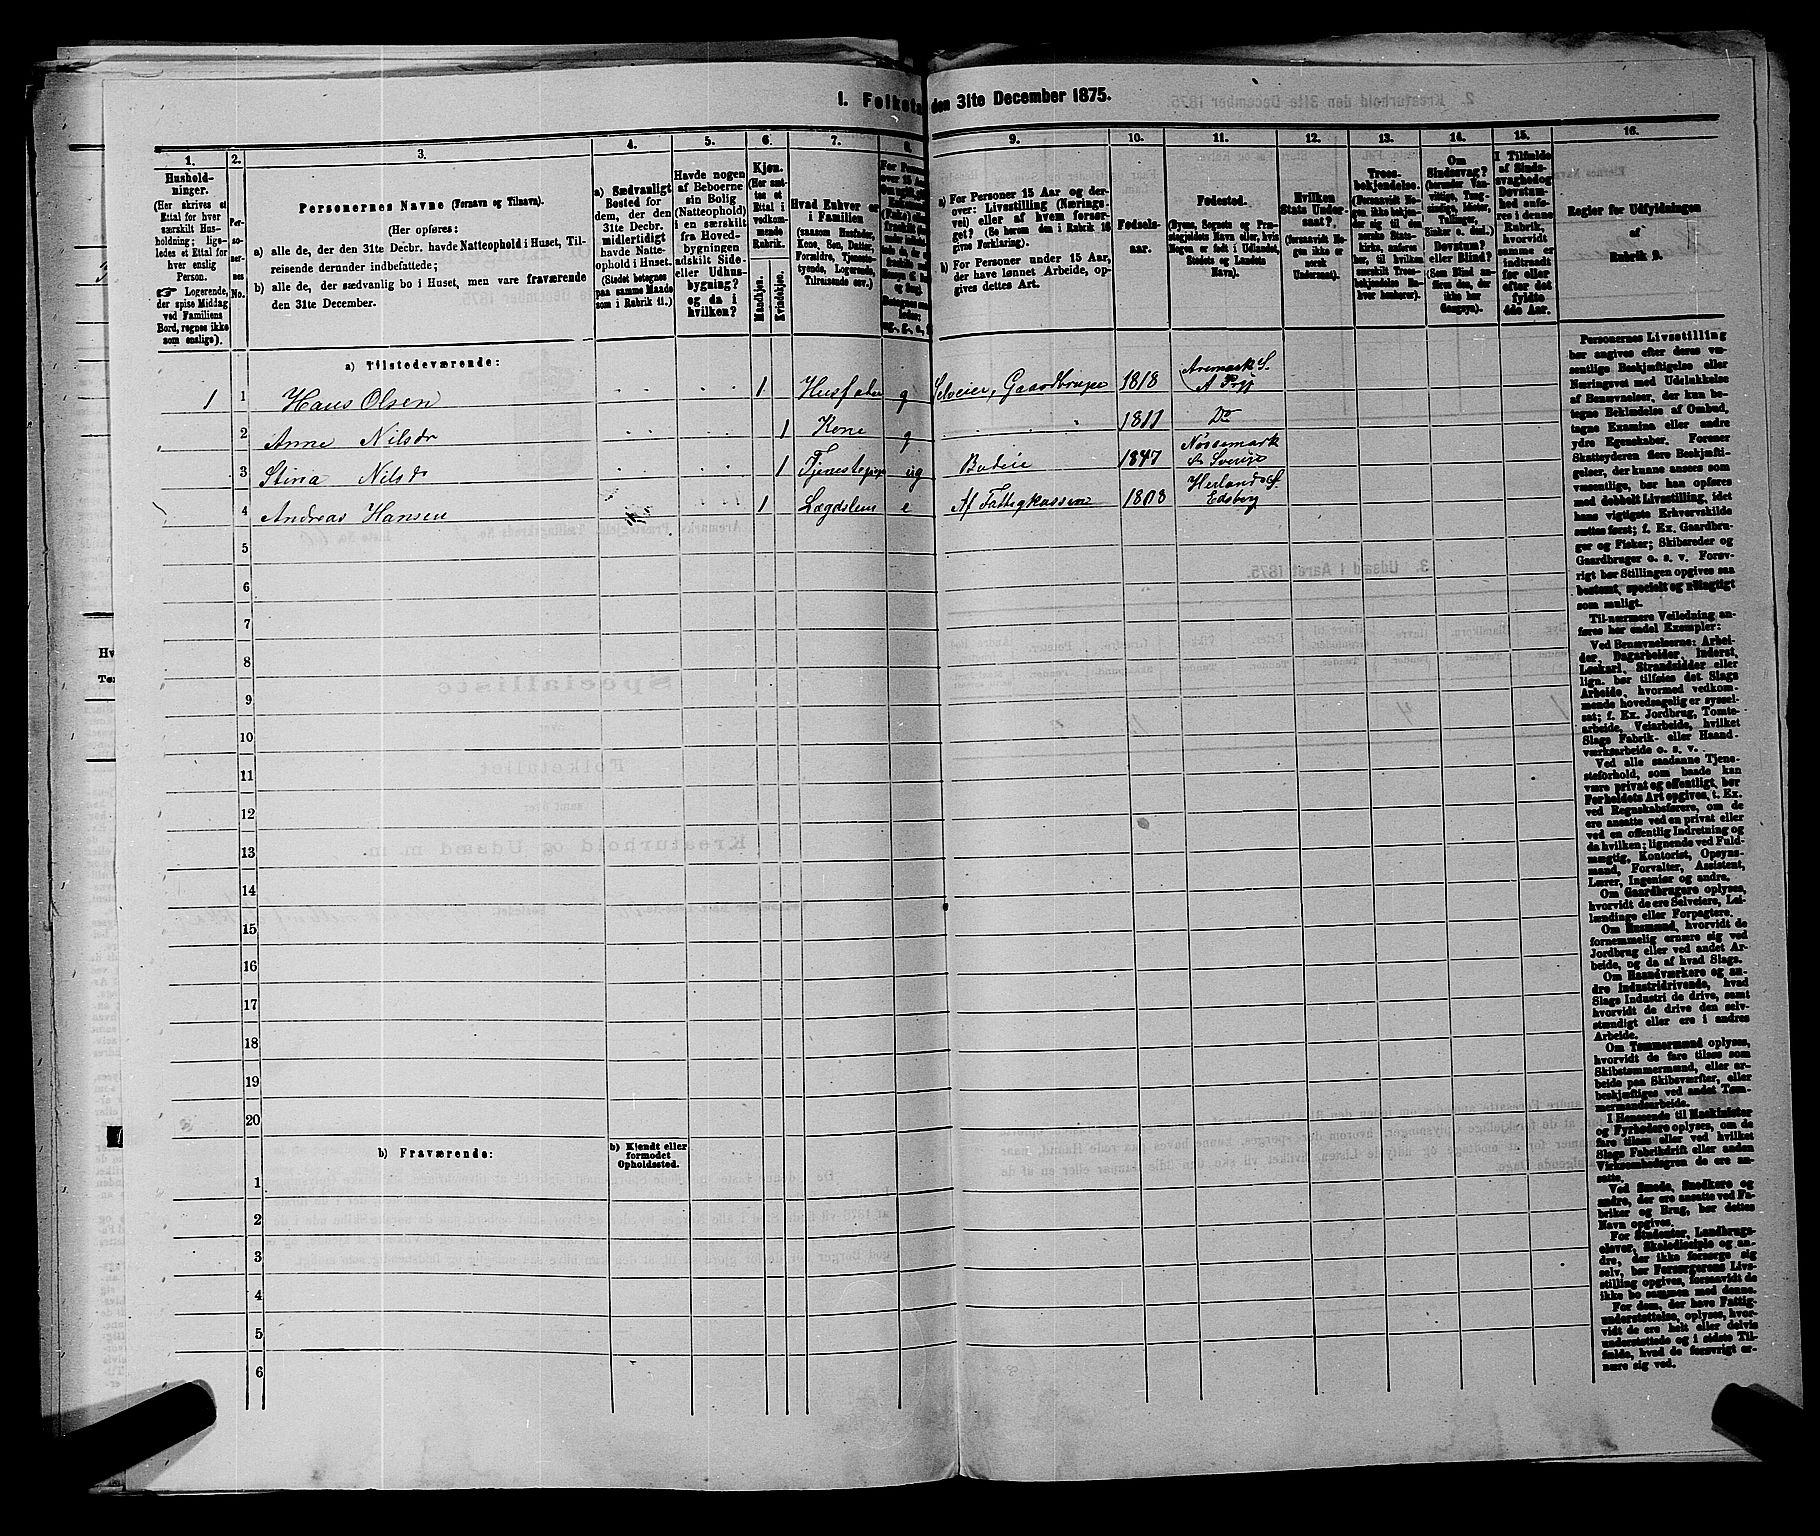 1. Folketa den 31te December 1875.
1.
Hushold-
ninger.
(Her skrives et
Ettal for hver
særskilt Hus-
holdning; lige-
ledes et Ettal for
hver enslig
Person.
☞ Logerende,
der spise Middag
ved Familiens
Bord, regnes ikke
som enslige).
2.
Per-
so-
ner-
nes
No.
3.
Personernes Navne (Fornavn og Tilnavn).
(Her opføres:
a) alle de, der den 31te Decbr. havde Natteophold i Huset, Til-
reisende derunder indbefattede;
b) alle de, der sædvanlig bo i Huset, men vare fraværende
den 31te December.
4.
a) Sædvanligt
Bosted for
dem, der den
31te Decbr.
midlertidigt
havde Natte-
ophold i Huset.
(Stedet betegnes
paa samme Maade
som i Rubrik 11.)
5.
Havde nogen
af Beboerne
sin Bolig
(Natteophold)
i en særskilt
fra Hoved-
bygningen
adskilt Side-
eller Udhus-
bygning?
og da i
hvilken?
6.
Kjøn.
(Her sæt-
tes et
Ettal i
vedkom-
mende
Rubrik.
Mandkjøn.
Kvindekjøn.
7.
Hvad Enhver er
i Familien
(saasom Husfader,
Kone, Søn, Datter,
Forældre, Tjeneste-
tyende, Logerende,
Tilreisende osv.)
8.
9.
a) For Personer 15 Aar og der-
over: Livsstilling (Nærings-
vei) eller af hvem forsør-
get? (Se herom den i Rubrik 16
givne Forklaring).
b) For Personer under 15 Aar,
der have lønnet Arbeide, op-
gives dettes Art.
10.
Fødsels-
aar.
11.
Fødested.
(Byens, Sognets og Præ-
stegjeldets Navn eller, hvis
Nogen er født i Udlandet,
Stedets og Landets
Navn).
12.
Hvilken
Stats Under-
saat?
(forsaavidt No-
gen ikke er
norsk
Undersaat).
13.
Troes-
bekjendelse.
(Forsaavidt No-
gen ikke beken-
der sig til den
norske Stats-
kirke, anføres
her, til hvilken
særskilt Troes-
bekjendelse En-
hver henhører).
14.
Om
Sindssvag?
Døvstum?
eller Blind?
15.
I Tilfælde
af Sinds-
svaghed og
Døvstum-
hed anfø-
res i denne
Rubrik,
hvorvidt
samme er
indtraadt
før eller
efter det
fyldte
4de Aar.
16.
Regler for Udfyldningen
af
Rubrik 9.
a) Tilstedeværende:
1 1 Hans Olsen 1 Husfader g Selveier, Gaardbruger 1818 Aremark S. A Prgj
2 Anne Nilsdr 1 Kone g 1811 Do
3 Stina Nilsdr 1 Tjenestepige ug Budeie 1847 Nössemark S. Sverige
4 Andreas Hansen 1 Lægdslem e Af Fattigkassen 1803 Herland S. Edsberg
5
6
7
8
9
10
11
12
13
14
15
16
17
18
19
20
b) Fraværende:
b) Kjendt eller
formodet
Opholdssted.
1
2
3
4
5
6
Personernes Livsstilling
bør angives efter deres væ-
sentlige Beskjæftigelse eller
Næringsvei med Udelukkelse
af Benævnelser, der kun be-
tegne Beklædelse af Ombud,
tagne Examina eller andre
ydre Egenskaber. Forener
Skatteyderen flere Beskjæfti-
gelser, der kunne ansees som
væsentlige, bør han opføres
med dobbelt Livsstilling, idet
hans vigtigste Erhvervskilde
sættes først; f. Ex. Gaardbru-
ger og Fisker; Skibsreder og
Gaardbruger o. s. v. Forøv-
rigt bør Stillingen opgives saa
bestemt, specielt og nøiagtigt
som muligt.
Til nærmere Veiledning an-
føres her endel Exempler:
Ved Benævnelserne: Arbei-
der, Dagarbeider, Inderst,
Løskarl, Strandsidder eller
lign. bør tilføies det Slags
Arbeide, hvormed vedkom-
mende hovedsagelig er syssel-
sat; f. Ex. Jordbrug, Tomte-
arbeide, Veiarbeide, hvilket
Slags Fabrik- eller Haand-
værksarbeide o. s. v.
Ved alle saadanne Tjene-
steforhold, som baade kan
være privat og offentligt, bør
Forholdets Art opgives, f. Ex.
ved Regnskabsførere, om de
ere ansatte ved en privat eller
ved en offentlig Indretning og
da hvilken; lignende ved Fuld-
mægtig, Kontorist, Opsyns-
mand, Forvalter, Assistent,
Lærer, Ingeniør og andre.
Om Gaardbrugere oplyses,
hvorvidt de ere Selveiere, Lei-
lændinge eller Forpagtere.
Om Husmænd, hvorvidt de
fornemmelig ernære sig ved
Jordbrug eller ved andet Ar-
beide, og da af hvad Slags.
Om Haandværkere og an-
dre Industridrivende, hvad
Slags Industri de drive, samt
hvorvidt de drive den selv-
stændigt eller ere i andres
Arbeide.
Om Tømmermænd oplyses,
hvorvidt de fare tilsøs som
Skibstømmermænd, eller ar-
beide paa Skibsværfter, eller
beskjæftiges ved andet Tøm-
mermandsarbeide.
I Henseende til Maskinister
og Fyrbødere oplyses, om de
fare tilsøs eller ved hvilket
Slags Fabrikdrift eller anden
Virksomhedsgren de ere an-
satte.
Ved Smede, Snedkere og
andre, der ere ansatte ved Fa-
briker og Brug, bør dettes
Navn opgives.
For Studenter, Landbrugs-
elever, Skoledisciple og an-
dre, der ikke forsørge sig
selv, bør Forsørgerens Livs-
stilling opgives, forsaavidt de
ikke bo sammen med denne.
For dem, der have Fattig-
understøttelse, oplyses, hvor-
vidt de ere helt eller delvis
understøttede og i sidste Til-
fælde, hvad de forøvrigt er-
nære sig ved.